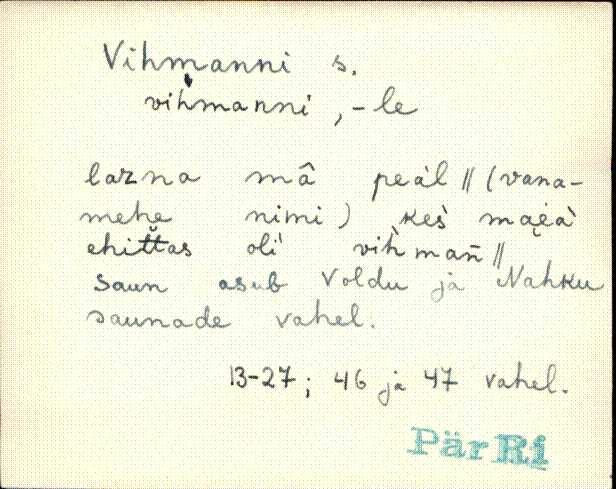 Vihmanni s.
vihmanni, -le
lazna mâ peàl // (vana-
mehe nimi) kes̀ mae̬à
ehittas oli̇̀ vih̀mañ //
Saun asub Voldu ja Nahku
saunade vahel.
13-27; 46 ja 47 vahel.
PärRi